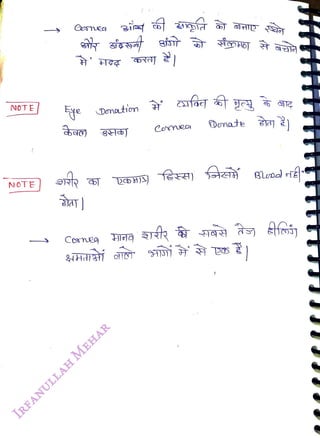 → Cornea आंख की आकृति को बनाए रखने
और अंदरूनी अंगो को संक्रमण से बचाने
में मदद करता है|
NOTE
Eye Donation में व्यक्ति की मृत्यु के बाद
केवल उसका Cornea Donate होता है|
NOTE
शरीर का एकमात्र हिस्सा जिसमें Blood नहीं
होता|
→ Cornea मानव शरीर के सबसे तेज हीलिंग
क्षमताओं वाले भागों में से एक है|
IRFANULLAH MEHAR